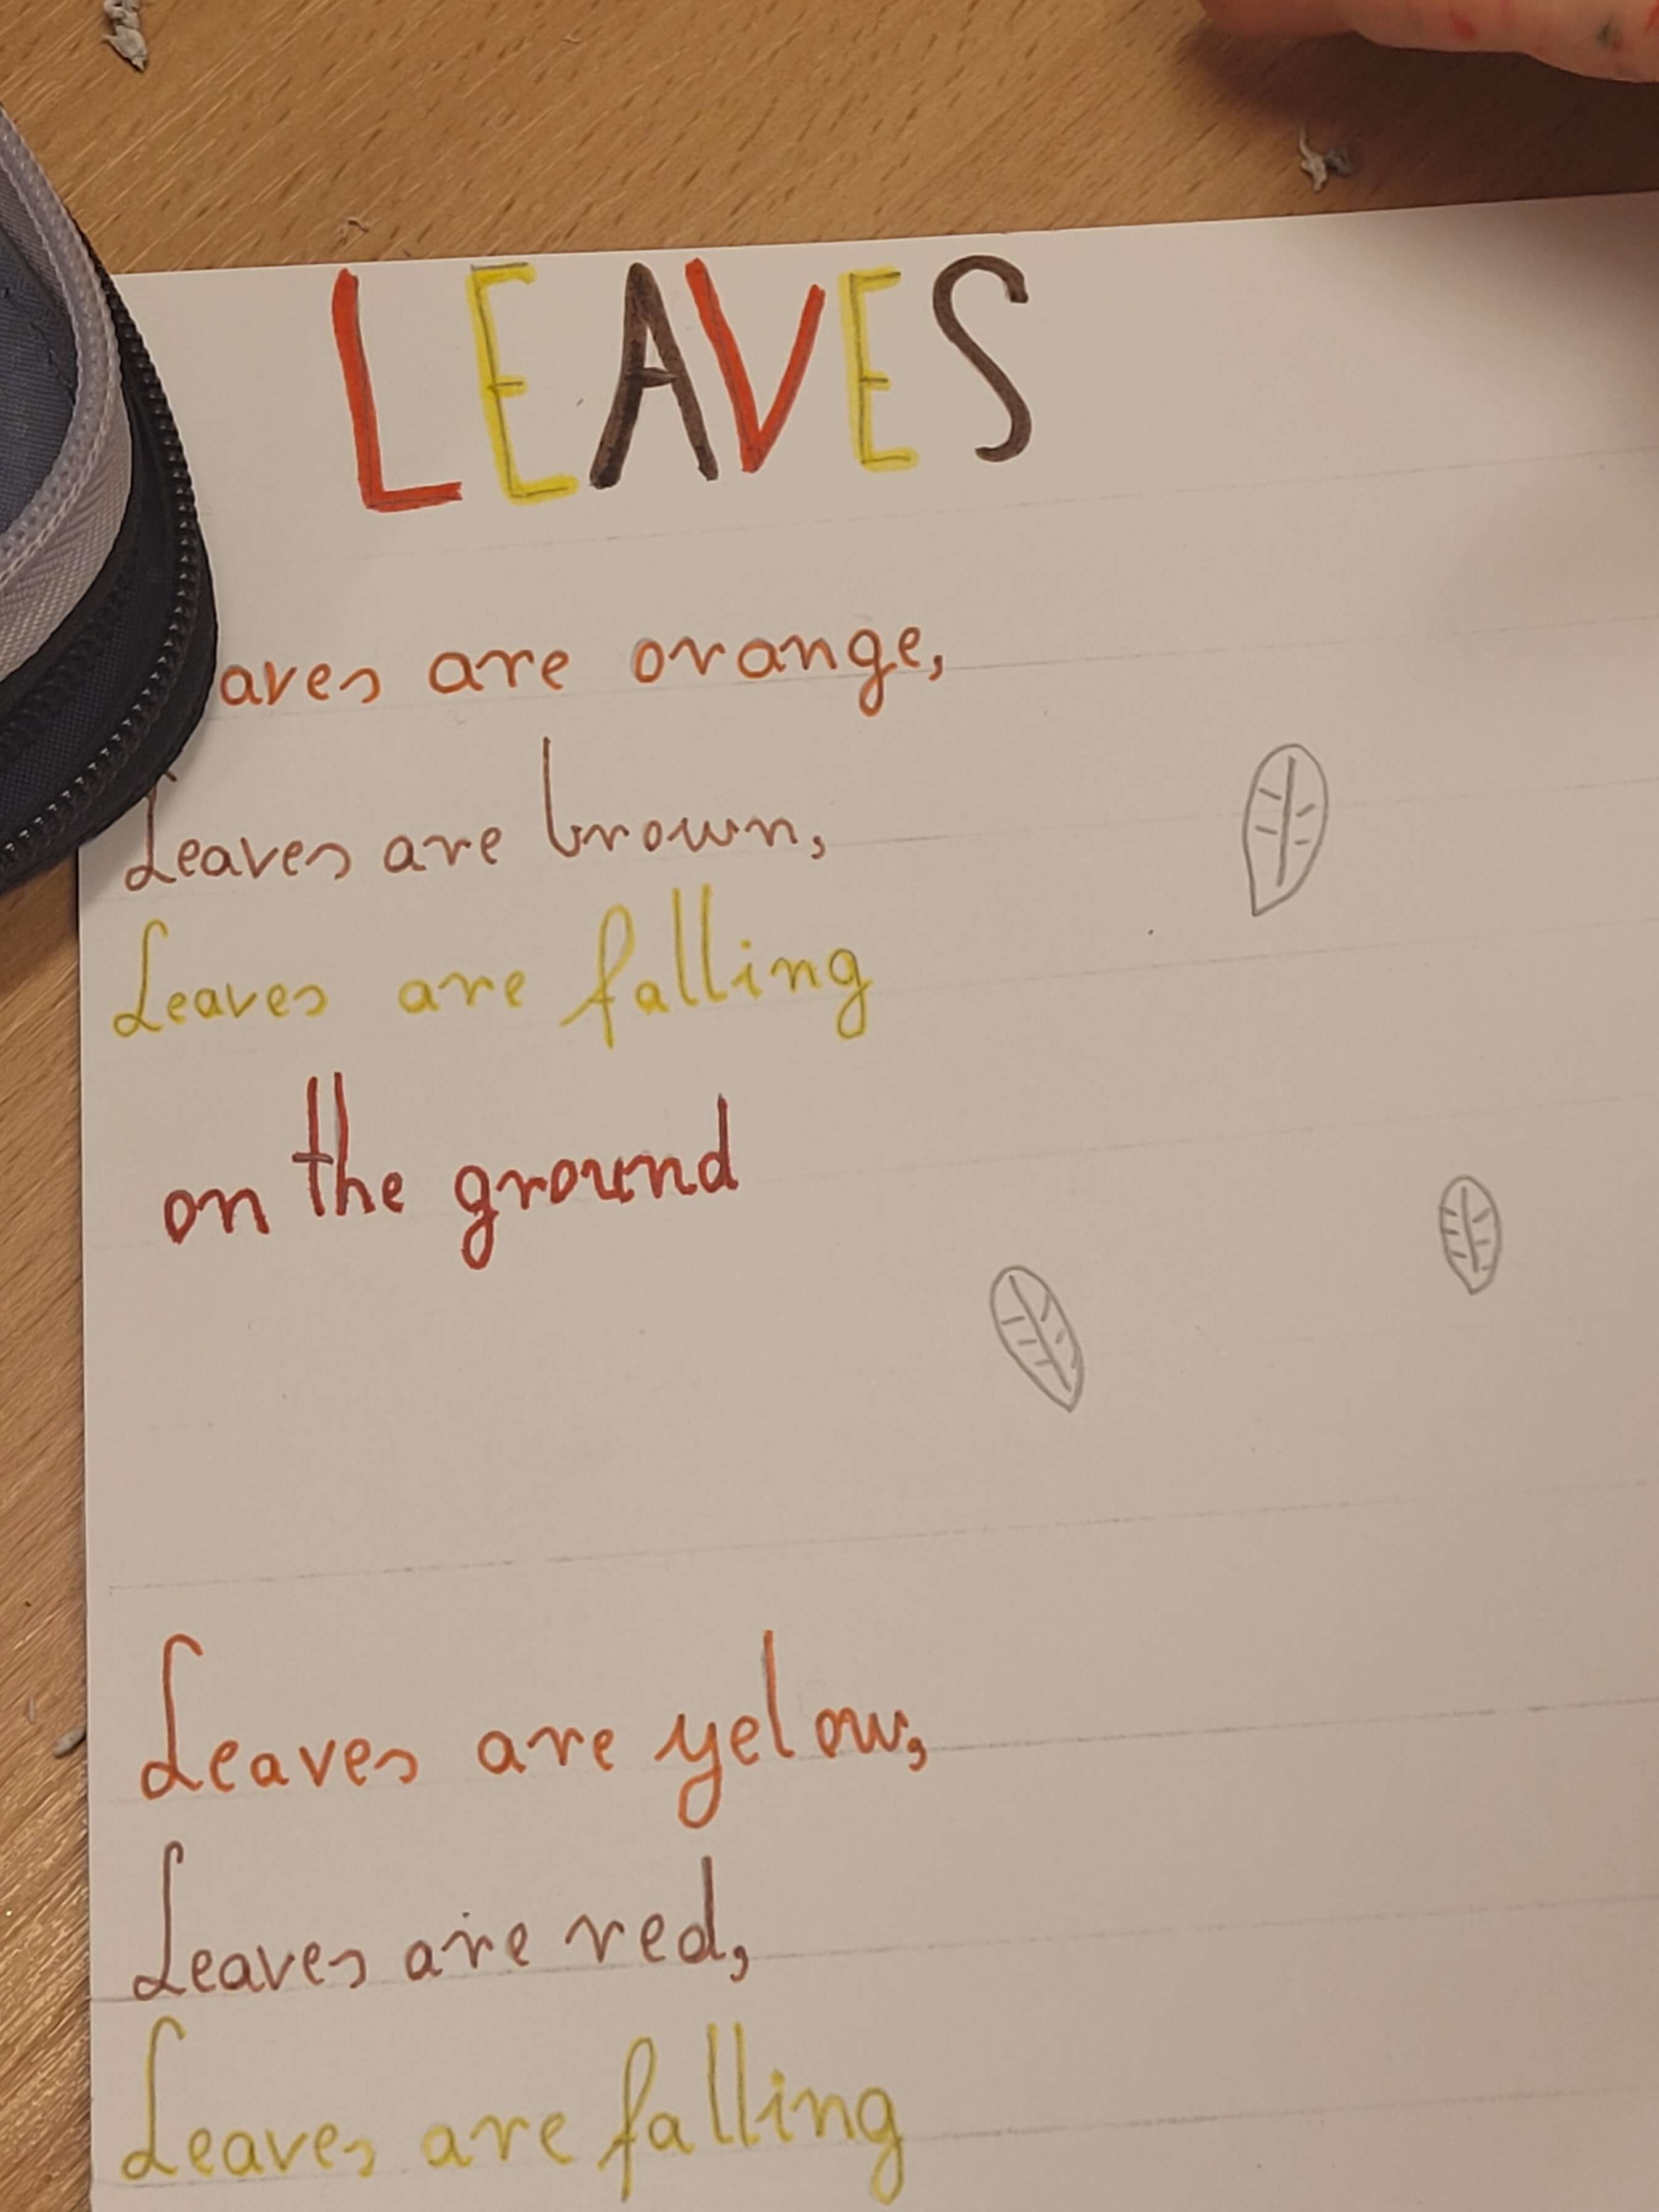 LEAVES
aves are orange,
Leaves are brown,
Leaves are falling
on the ground
Leaves are yelow,
Leaves are red,
Leaves are falling